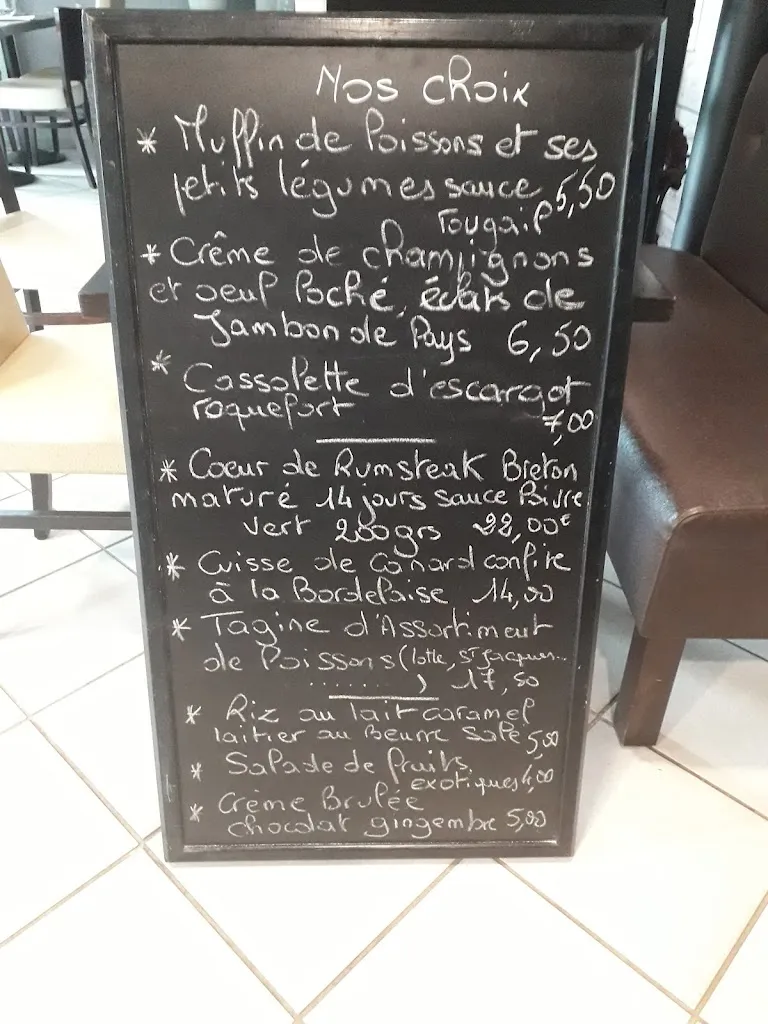 Nos choix
* Muffin de Poissons et ses
petits légumes sauce 5,50
* Crême de champignons
et oeuf Poché, éclats de
Jambon de Pays 6,50
* Cassolette d'escargot
roquefort 7,00
* Coeur de Rumsteak Breton
maturé 14 jours sauce Poivre
vert 200grs 22,00€
* Cuisse de Canard confite
à la Bordelaise 14,00
* Tagine d'Assortiment
de Poissons (lotte, St Jacques...
........) 17,50
* Riz au lait caramel
laitier au Beurre Salé 5,00
* Salade de fruits
exotiques 4,00
* Crème Brulée
chocolat gingembre 5,00